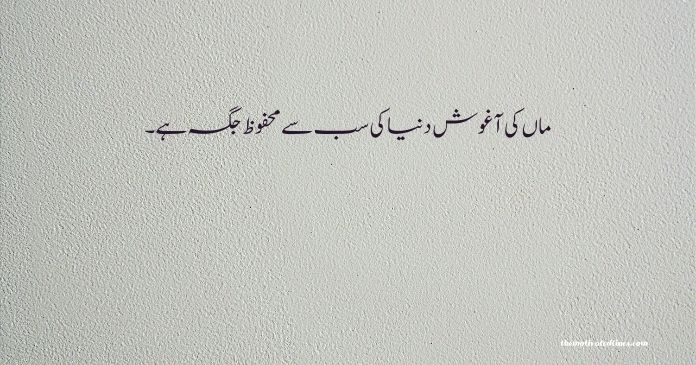 ماں کی آغوش دنیا کی سب سے محفوظ جگہ ہے۔
themotivatedlines.com